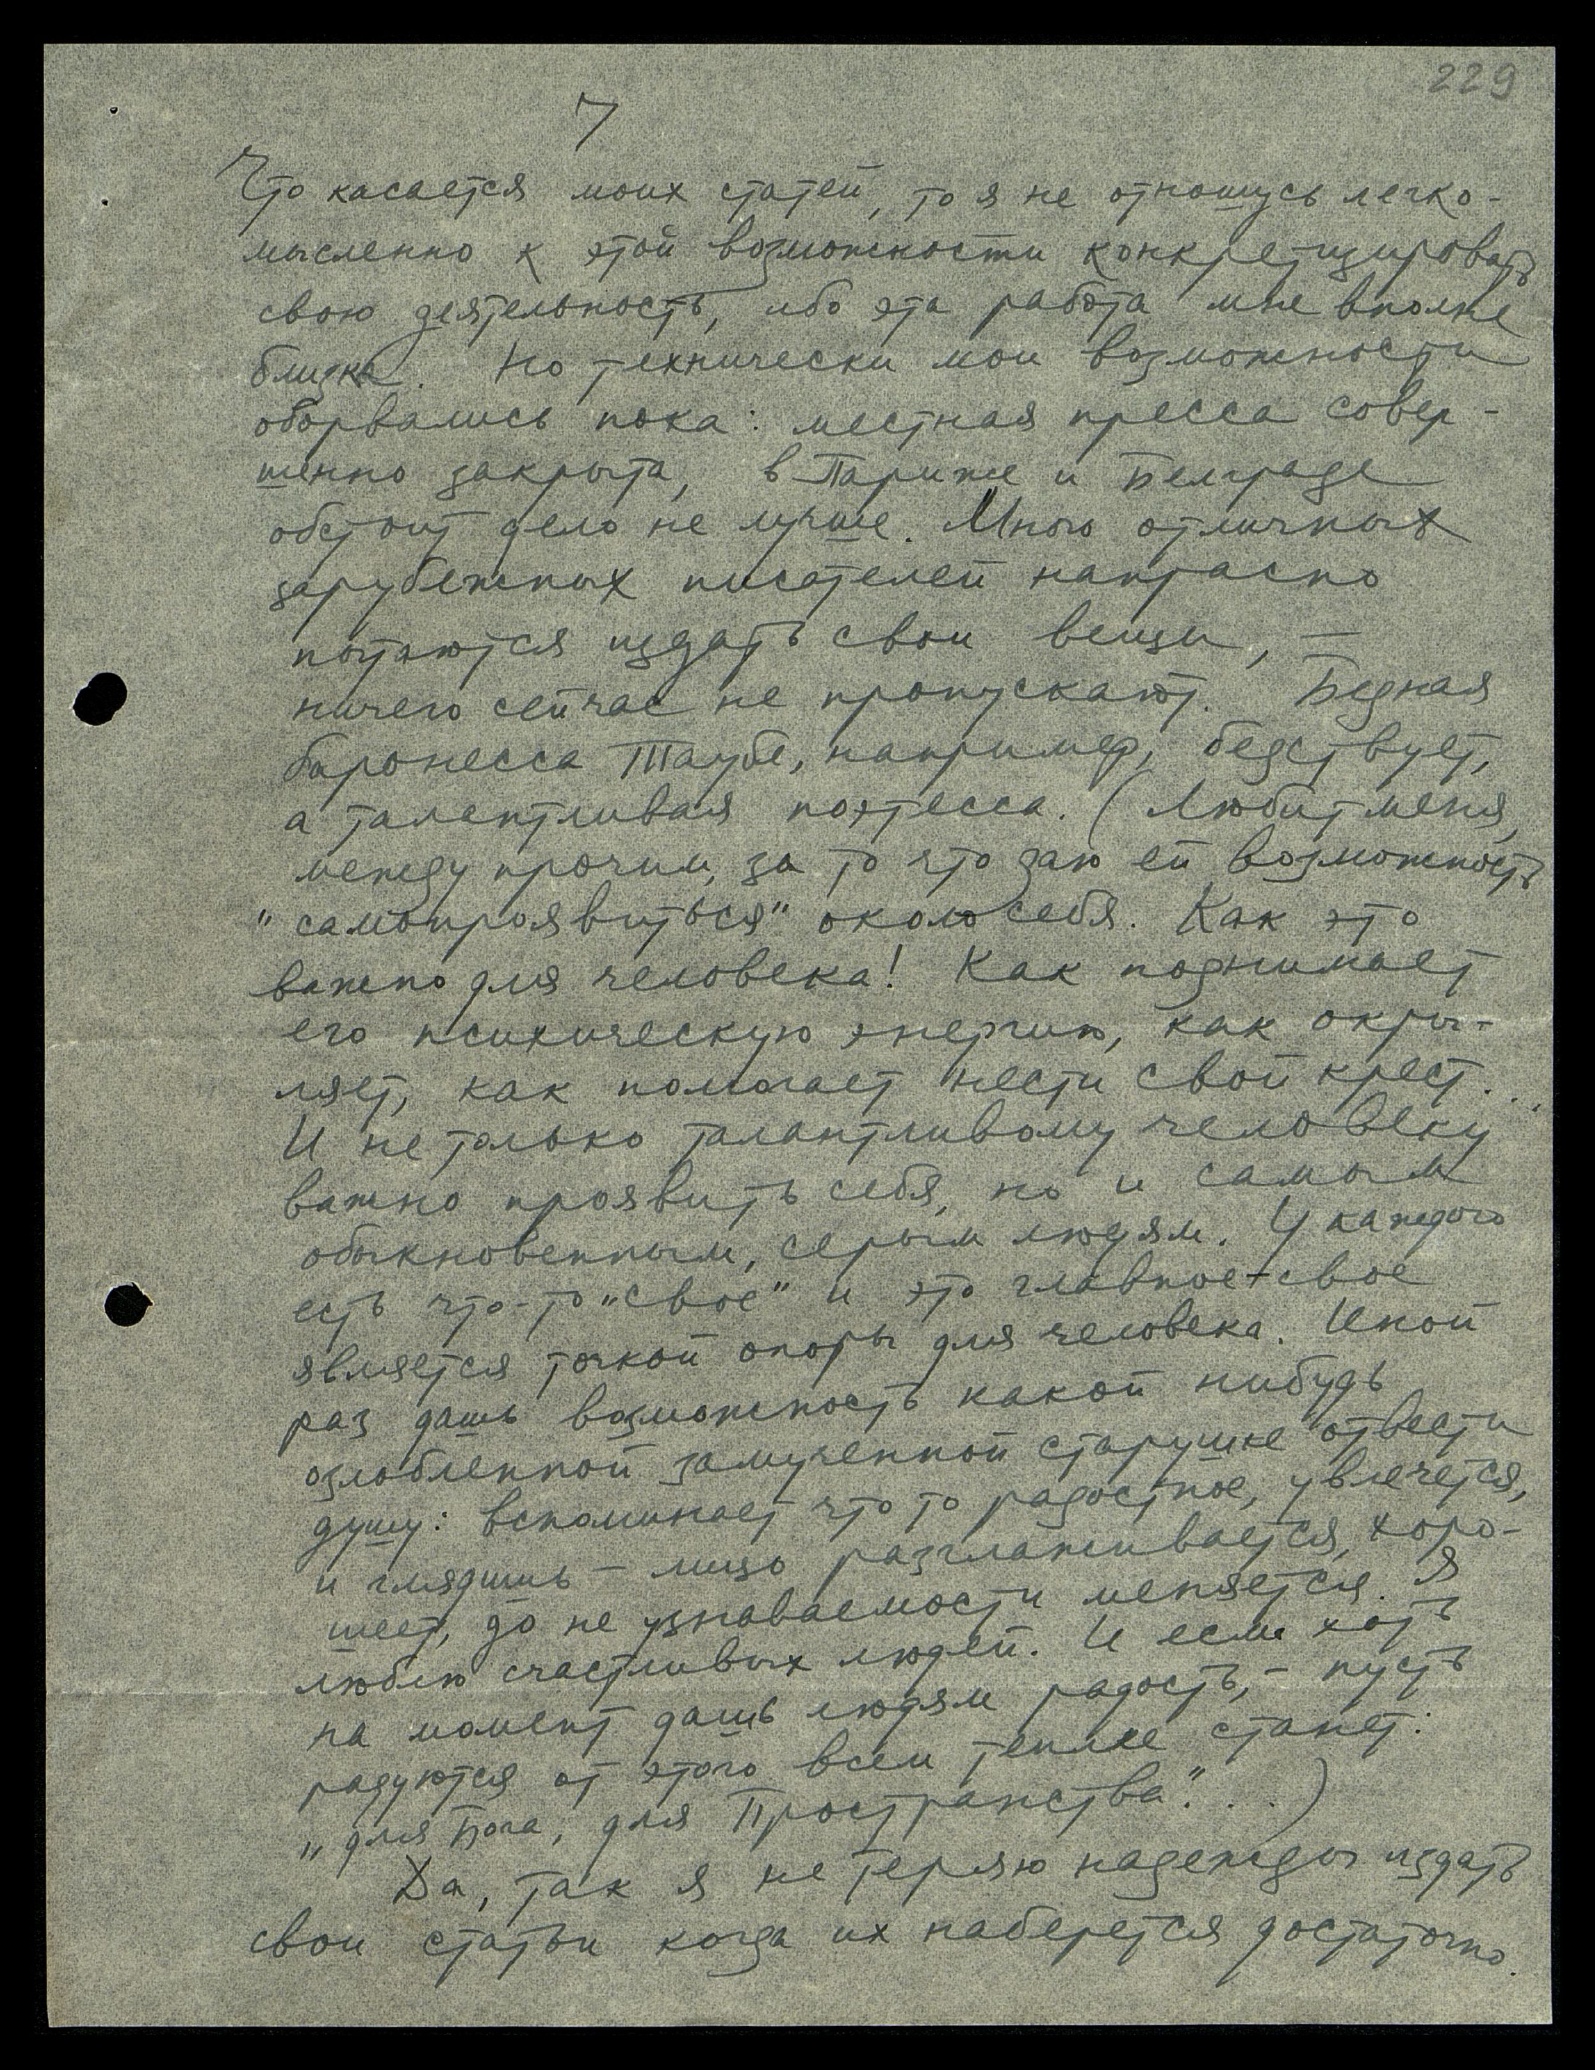 229
7
Что касается моих статей, то я не отношусь легко-
мысленно к этой возможности конкретизировать
свою деятельность, ибо эта работа мне вполне
близка. Но технически мои возможности
оборвались пока: местная пресса совер-
шенно закрыта, в Париже и Белграде
обстоит дело не лучше. Много отличных
зарубежных писателей напрасно
пытаются издать свои вещи, —
ничего сейчас не пропускают. Бедная
баронесса Таубе, например, бедствует,
а талантливая поэтесса. (Любит меня,
между прочим, за то что даю ей возможность
"самопроявиться" около себя. Как это
важно для человека! Как поднимает
его психическую энергию, как окры-
ляет, как помогает нести свой крест...
И не только талантливому человеку
важно проявить себя, но и самым
обыкновенным, серым людям. У каждого
есть что-то "свое" и это главное-свое
является точкой опоры для человека. Иной
раз дашь возможность какой нибудь
озлобленной замученной старушке отвести
душу: вспоминает что то радостное, увлечется,
и глядишь – лицо разглаживается, хоро-
шеет, до не узнаваемости меняется. Я
люблю счастливых людей. И если хоть
на момент дашь людям радость, – пусть
радуются от этого всем теплее станет:
"для Бога, для Пространства"...)
Да, так я не теряю надежды издать
свои статьи когда их наберется достаточно.